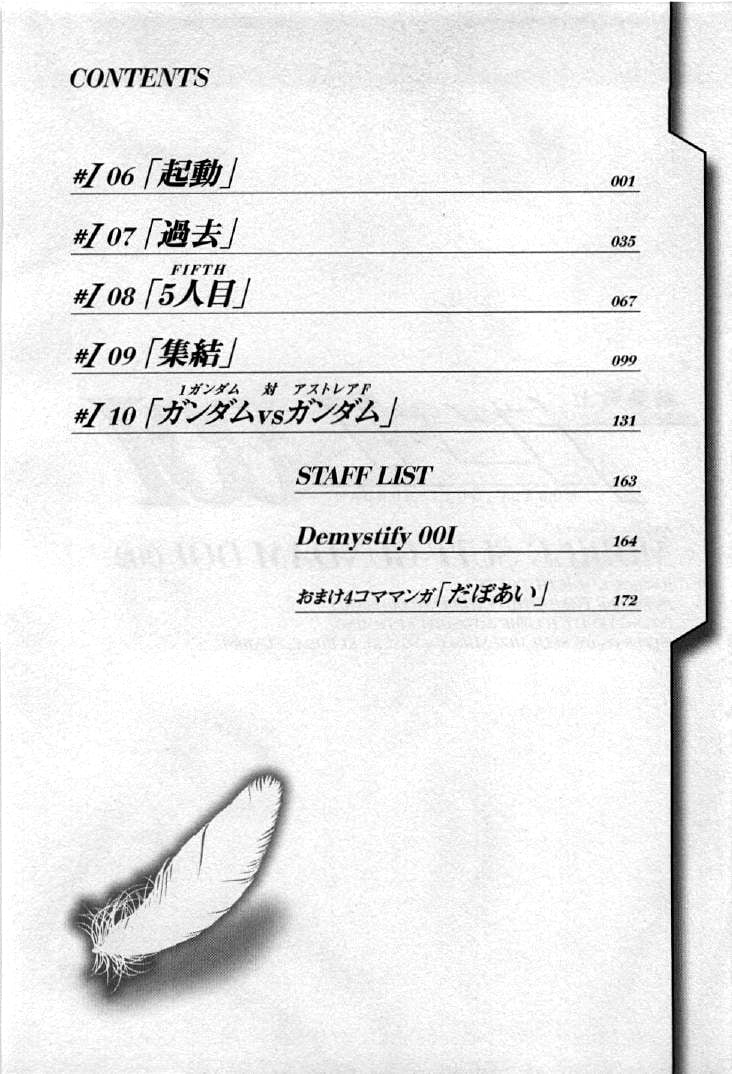 CONTENTS
#I 06「起動」 001
#I 07「過去」 035
FIFTH
#I 08「5人目」 067
#I 09「集結」 099
1ガンダム 対 アストレアF
#I 10「ガンダムvsガンダム」 131
STAFF LIST 163
Demystify 00I 164
おまけ4コママンガ「だぽあい」 172